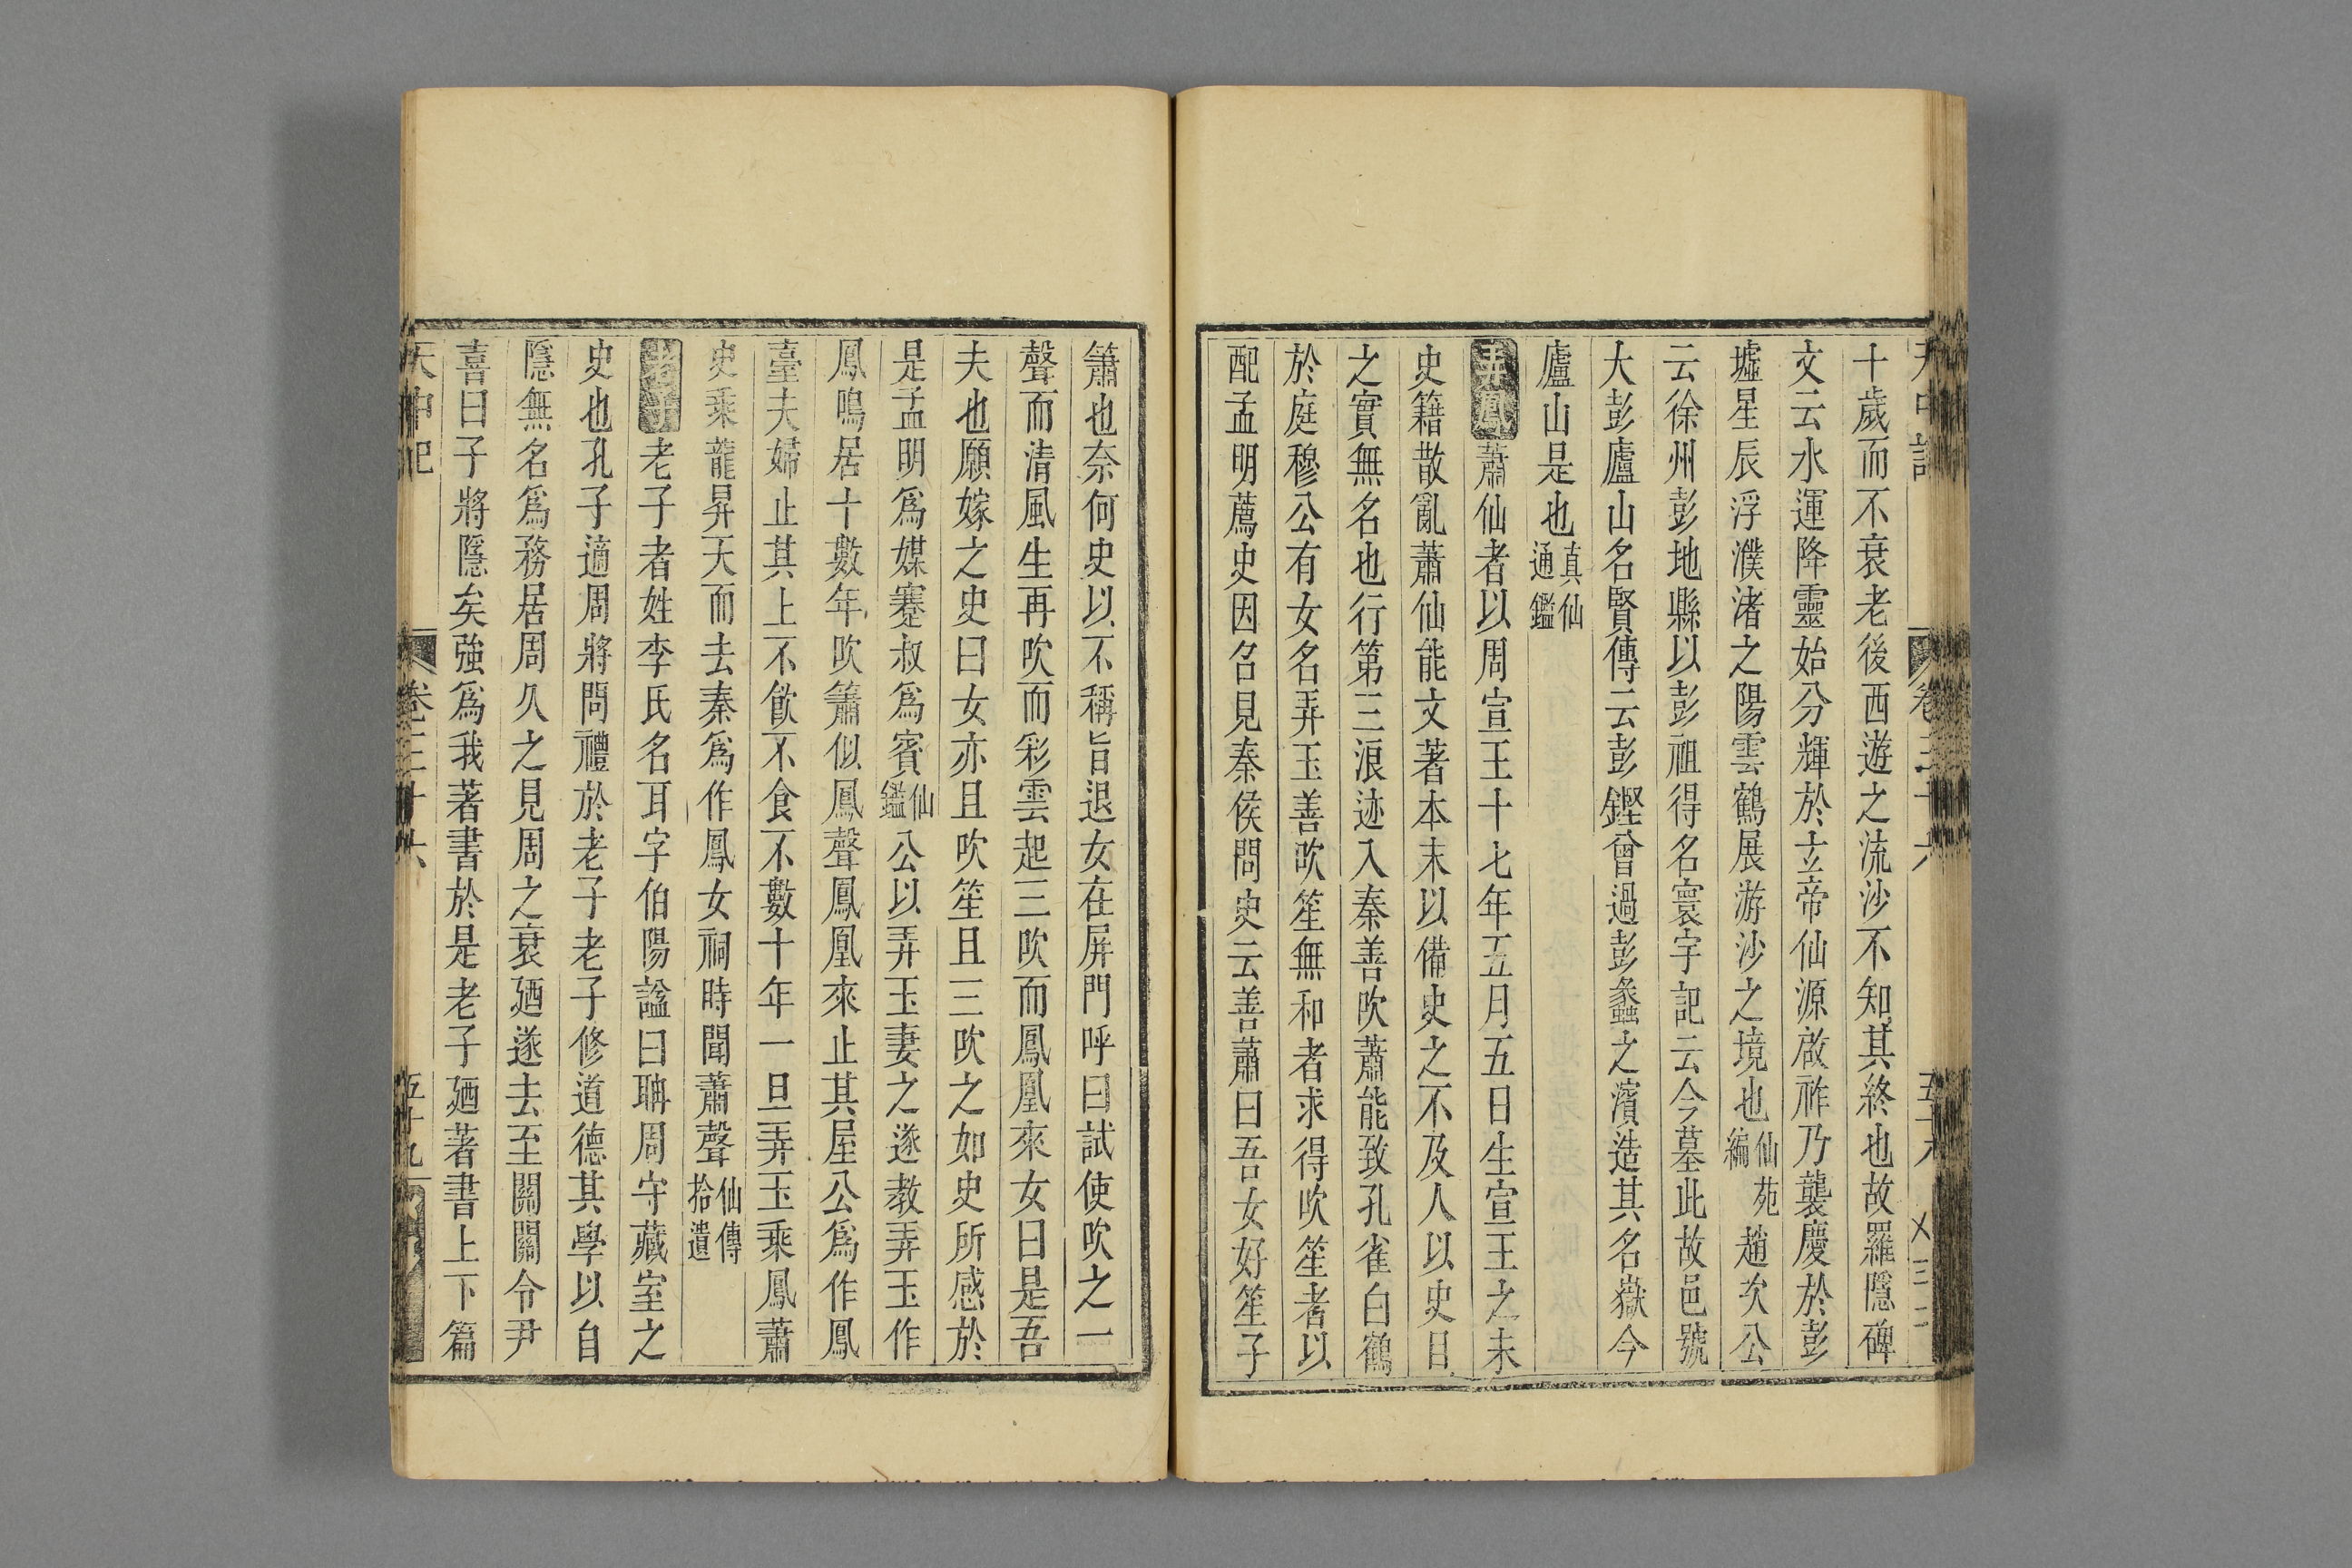 十歲而不衰老後西遊之流沙不知其終也故羅隱碑
文云水運降靈始分輝於玄帝仙源啟祚乃襲慶於彭
墟星辰浮濮渚之陽雲鶴展游沙之境也仙苑編趙次公
云徐州彭地縣以彭祖得名寰宇記云今墓此故邑號
大彭廬山名賢傳云彭鏗曾過彭蠡之濱造其名嶽今
廬山是也真仙通鑑
弄鳳蕭仙者以周宣王十七年五月五日生宣王之末
史籍散亂蕭仙能文著本末以備史之不及人以史目
之實無名也行第三浪迹入秦善吹蕭能致孔雀白鶴
於庭穆公有女名弄玉善吹笙無和者求得吹笙者以
配孟明薦史因召見秦侯問史云善蕭曰吾女好笙子
簫也奈何史以不稱旨退女在屏門呼曰試使吹之一
聲而清風生再吹而彩雲起三吹而鳳凰來女曰是吾
夫也願嫁之史曰女亦且吹笙且三吹之如史所感於
是孟明爲媒蹇叔爲賓仙鑑公以弄玉妻之遂教弄玉作
鳳鳴居十數年吹簫似鳳聲鳳凰來止其屋公爲作鳳
臺夫婦止其上不飲不食不數十年一旦弄玉乘鳳蕭
史乘龍昇天而去秦爲作鳳女祠時聞蕭聲仙傳拾遺
老子老子者姓李氏名耳字伯陽諡曰聃周守藏室之
史也孔子適周將問禮於老子老子修道德其學以自
隱無名爲務居周久之見周之衰廼遂去至關關令尹
喜曰子將隱矣強爲我著書於是老子廼著書上下篇
天中記 卷三十六 五十九